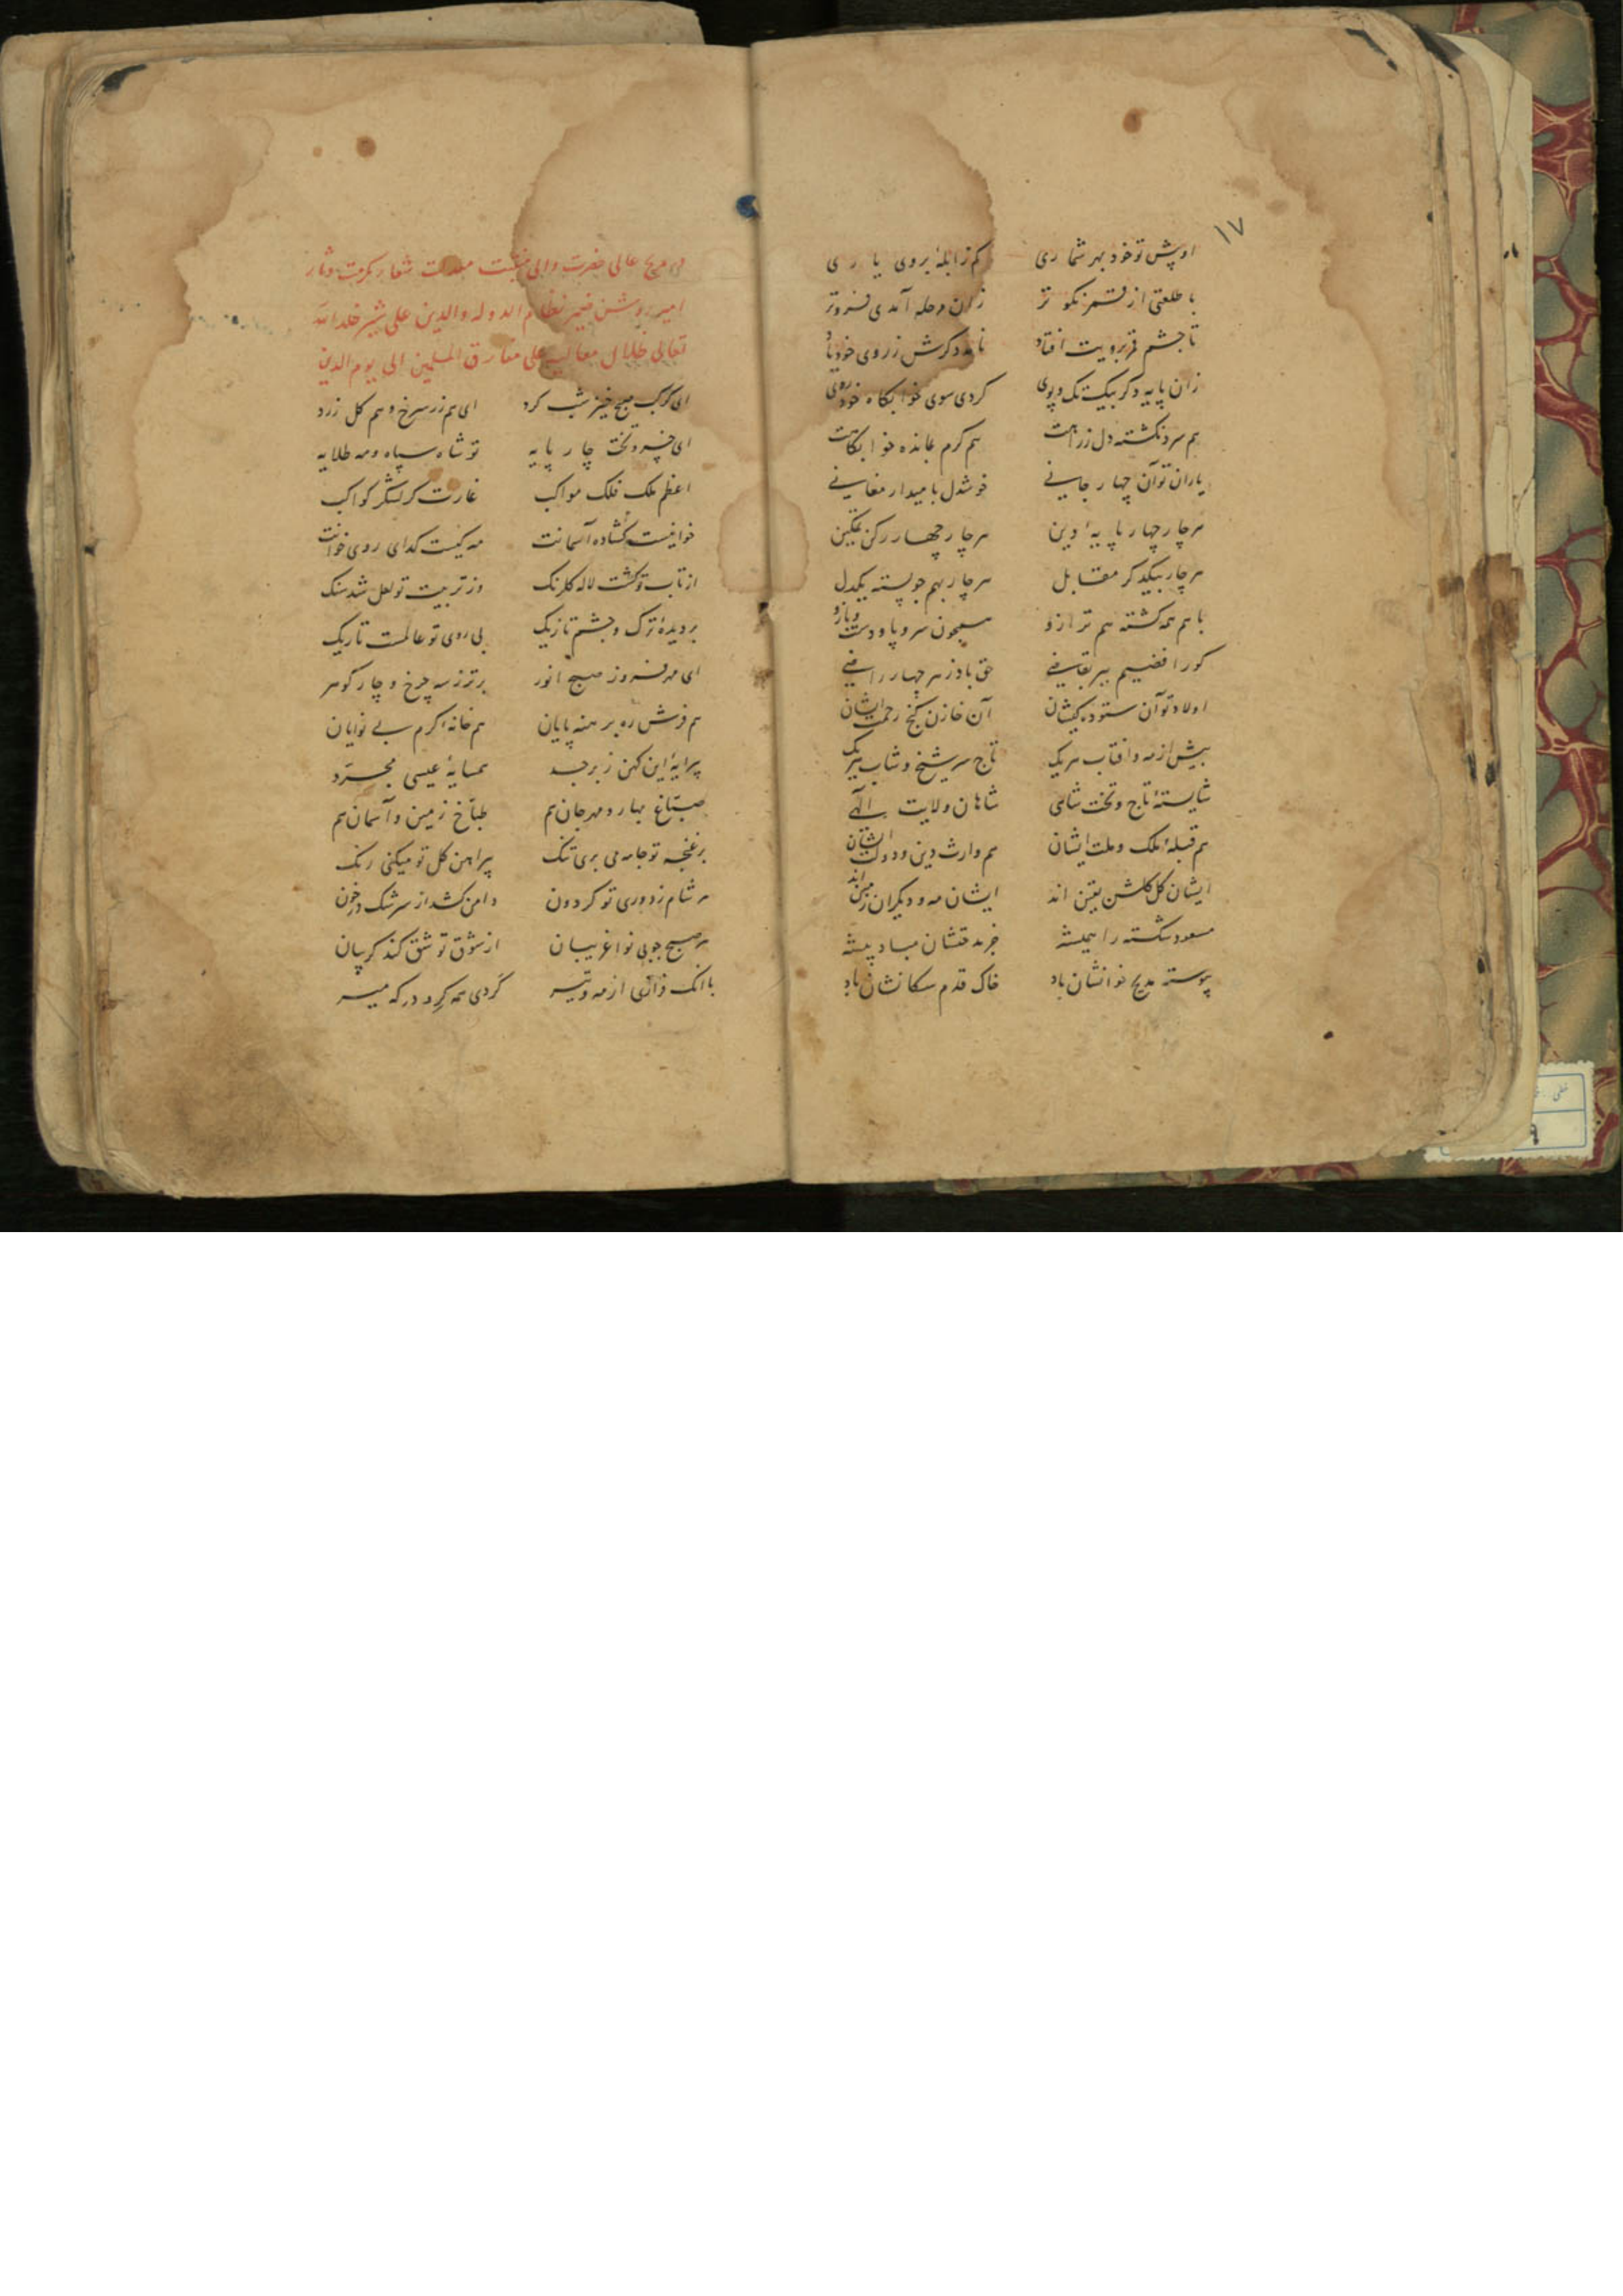 ۱۷
او پیش تو خود بهر شماری کم ز ابلهٔ بروی یاری
با طلعتی از قمر نکو تر زان مرحله آمدی فروتر
تا چشم قمر برویت افتاد نامد دکرش ز روی خود یاد
زان پایه دکر بیک تک و پوی کردی سوی خوابکاه خود روی
هم سرد نکشته دل ز راهت هم کرم بمانده خوابکاهت
یاران تو آن چهار جانی خوشدل بامید ار مغانی
هر چار چهار پایهٔ دین هر چار چهار رکن تمکین
هر چار بیکدکر مقابل هر چار بهم چو پسته یکدل
با هم همه کشته هم ترازو همچون سر و پا و دست و بازو
کو رافضییم ببر بقاضی حق باد ز هر چهار راضی
اولاد تو آن ستوده کیشان آن خازن کنج رحمت ایشان
بیش از مه و افتاب هریک تاج سر شیخ و شاب هریک
شایستهٔ تاج و تخت شاهی شاهان ولایت الهی
هم قبلهٔ ملک و ملت ایشان هم وارث دین و دولت ایشان
ایشان کل کلشن یقین اند ایشان مه و دیکران زمین اند
مسعود شکسته را همیشه جز مدحتشان مباد پیشه
پیوسته مدیح خوانشان باد خاک قدم سکانشان باد
در مدح عالی حضرت والی منقبت معدلت شعار مکرمت دثار
امیر روشن ضمیر نظام الدوله والدین علی شیر خلد الله
تعالی ظلال معالیه علی مفارق المسلمین الی یوم الدین
ای کوکب صبح خیز شب کرد ای هم زر سرخ و هم کل زرد
ای خسرو تخت چار پایه تو شاه سپاه و مه طلایه
اعظم ملک فلک مواکب غارت کر لشکر کواکب
خوانیست کشاده آسمانت مه کیست کدای روی خوانت
از تاب تو کشت لاله کلرنک وز تربیت تو لعل شد سنک
بر دیدهٔ ترک و چشم تازیک بی روی تو عالمست تاریک
ای مهر فروز صبح انور برتر ز سه چرخ و چار کوهر
هم فرش ره برهنه پایان هم خانه کرم بی نوایان
پیرایهٔ این کهن زبرجد همسایهٔ عیسی مجرّد
صبّاغ بهار و مهرجان هم طبّاخ زمین و آسمان هم
بر غنچه تو جامه می بری تنک پیراهن کل تو میکنی رنک
هر شام ز دوری تو کردون دامن کشد از سرشک در خون
هر صبح چو بی نوا غریبان از شوق تو شق کند کریبان
با انک فزازی از مه و تیر کردی همه کرد درکه میر